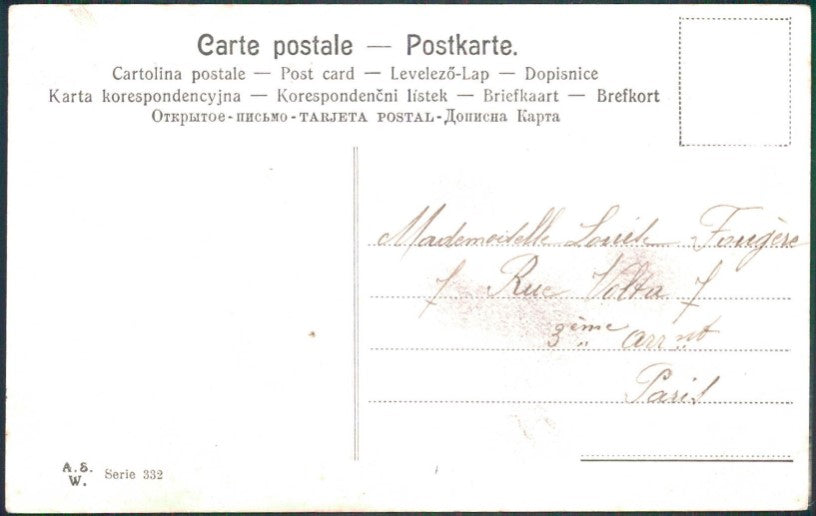 Carte postale — Postkarte.
Cartolina postale — Post card — Levelező-Lap — Dopisnice
Karta korespondencyjna — Korespondenčni lístek — Briefkaart — Brefkort
Открытое-письмо-TARJETA POSTAL-Дописна Карта
Mademoiselle Louise Fougère
7 Rue Volta 7
3ème arr nt
Paris
A. S.
W. Serie 332